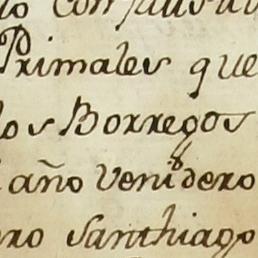 Primales que
los Borregos
año venidero
ro Santhiago